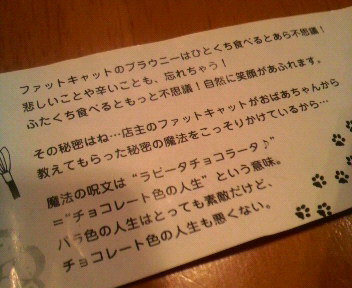 ファットキャットのブラウニーはひとくち食べるとあら不思議！
悲しいことや辛いことも、忘れちゃう！
ふたくち食べるともっと不思議！自然に笑顔があふれます。
その秘密はね…店主のファットキャットがおばあちゃんから
教えてもらった秘密の魔法をこっそりかけているから…
魔法の呪文は“ラビータチョコラータ♪”
＝“チョコレート色の人生”という意味。
バラ色の人生はとっても素敵だけど、
チョコレート色の人生も悪くない。